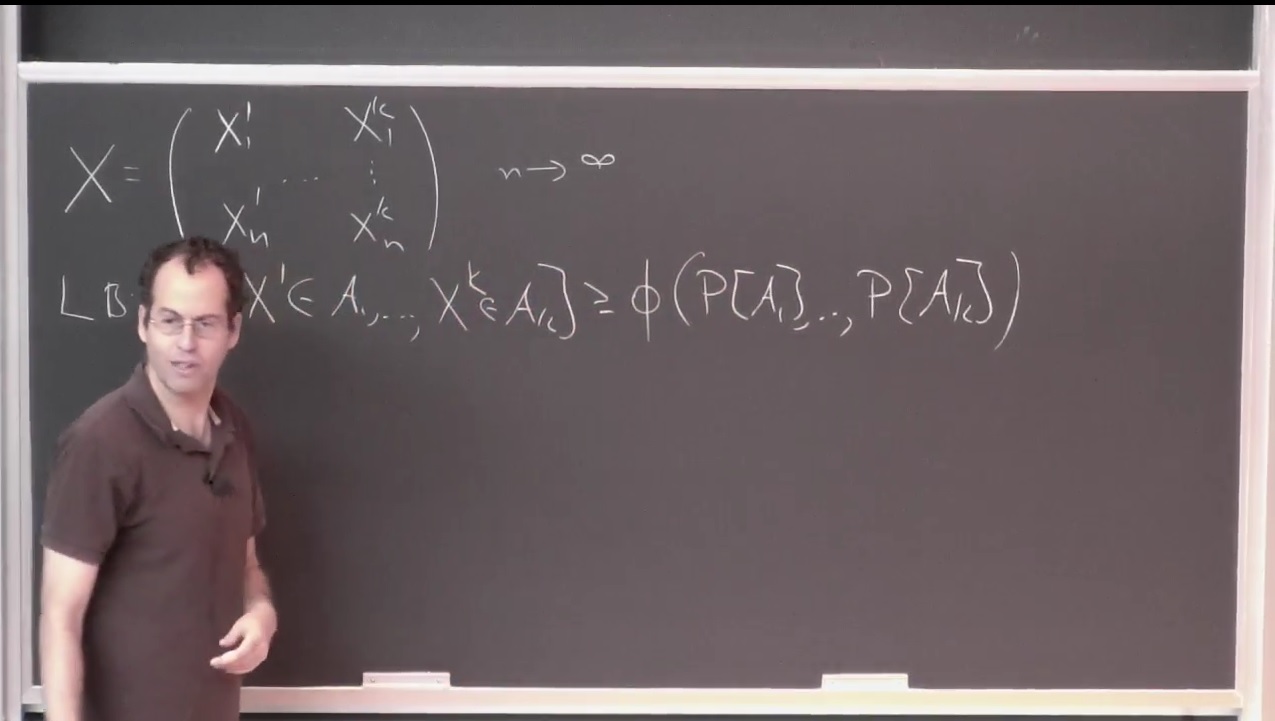 X = ( X_1^1 ... X_1^k ⋮ X_n^1 X_n^k ) n → ∞
LB: X^1 ∈ A_1, ..., X^k ∈ A_k] ≥ ϕ(P[A_1], .., P[A_k])